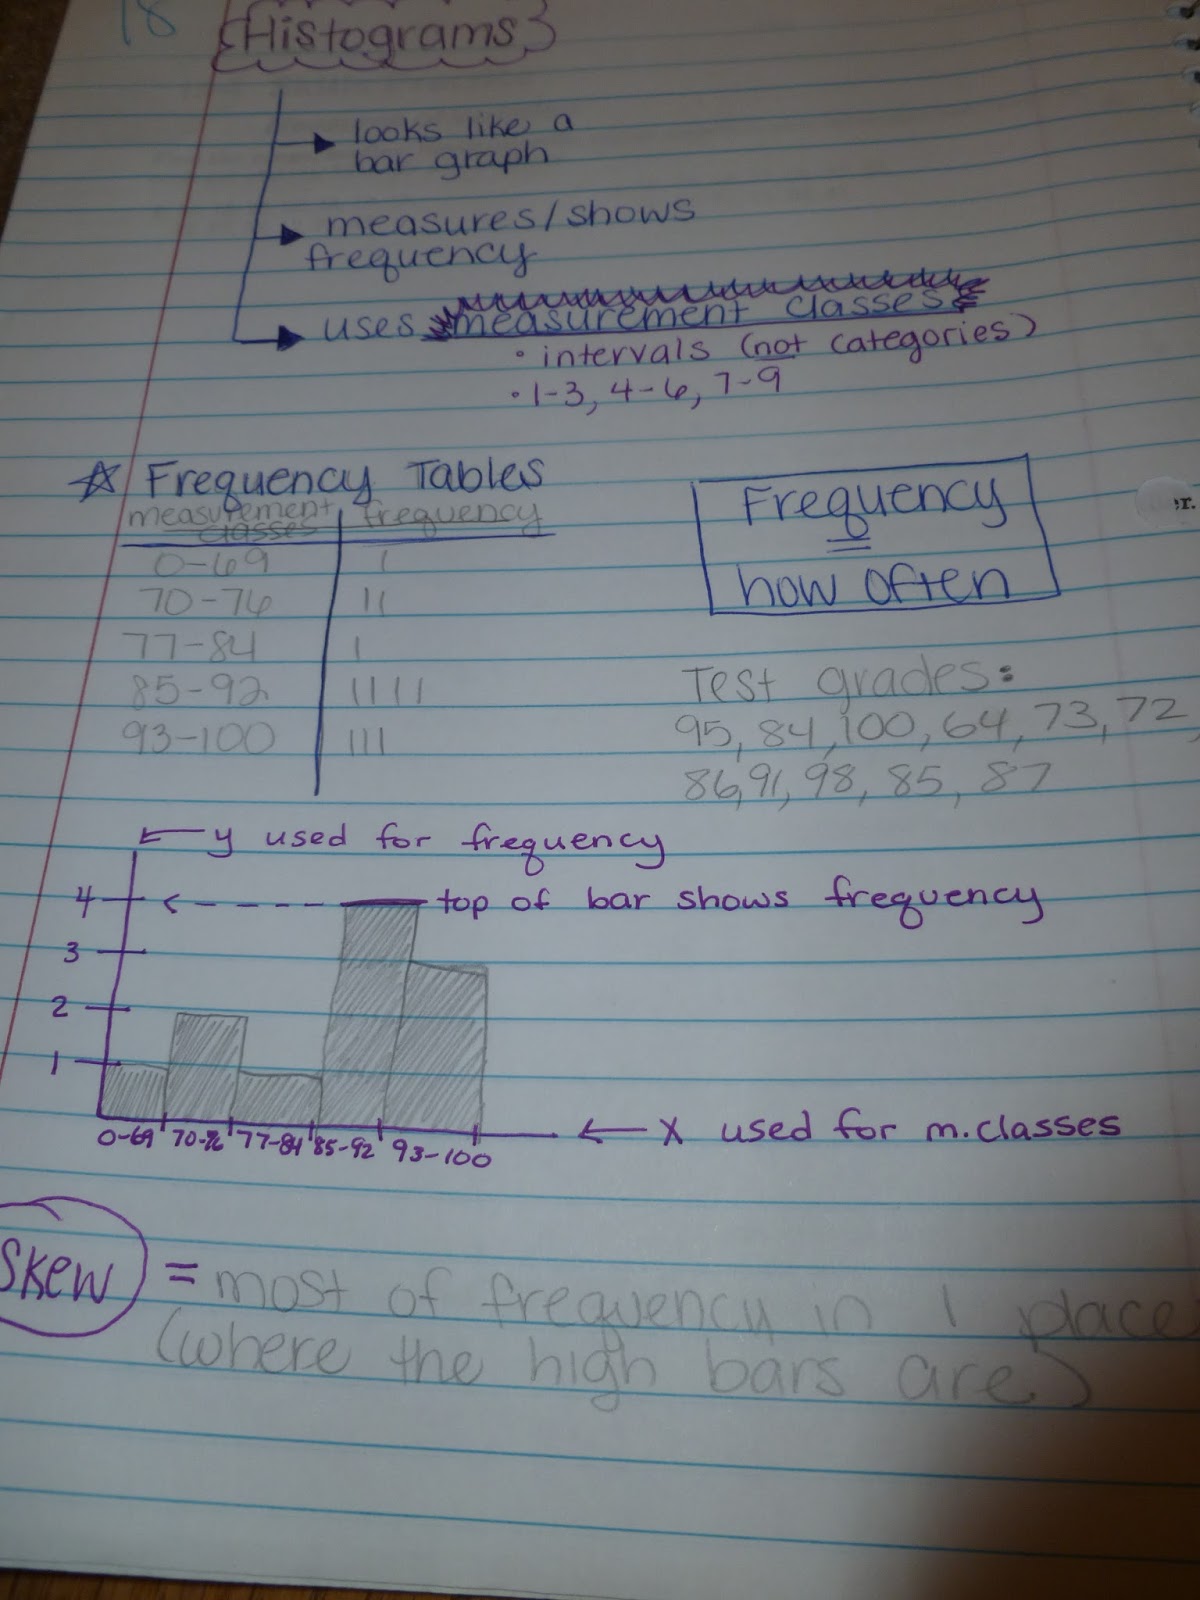 18
Histograms
looks like a
bar graph
measures/shows
frequency
uses measurement classes
• intervals (not categories)
• 1-3, 4-6, 7-9
☆ Frequency Tables
measurement classes | frequency
0-69 | I
70-76 | II
77-84 | I
85-92 | IIII
93-100 | III
Frequency
=
how often
er.
Test grades:
95, 84, 100, 64, 73, 72,
86, 91, 98, 85, 87
← y used for frequency
4 <- - - - top of bar shows frequency
3
2
1
0-69 70-76 77-84 85-92 93-100 ← X used for m.classes
Skew = most of frequency in 1 place
(where the high bars are)